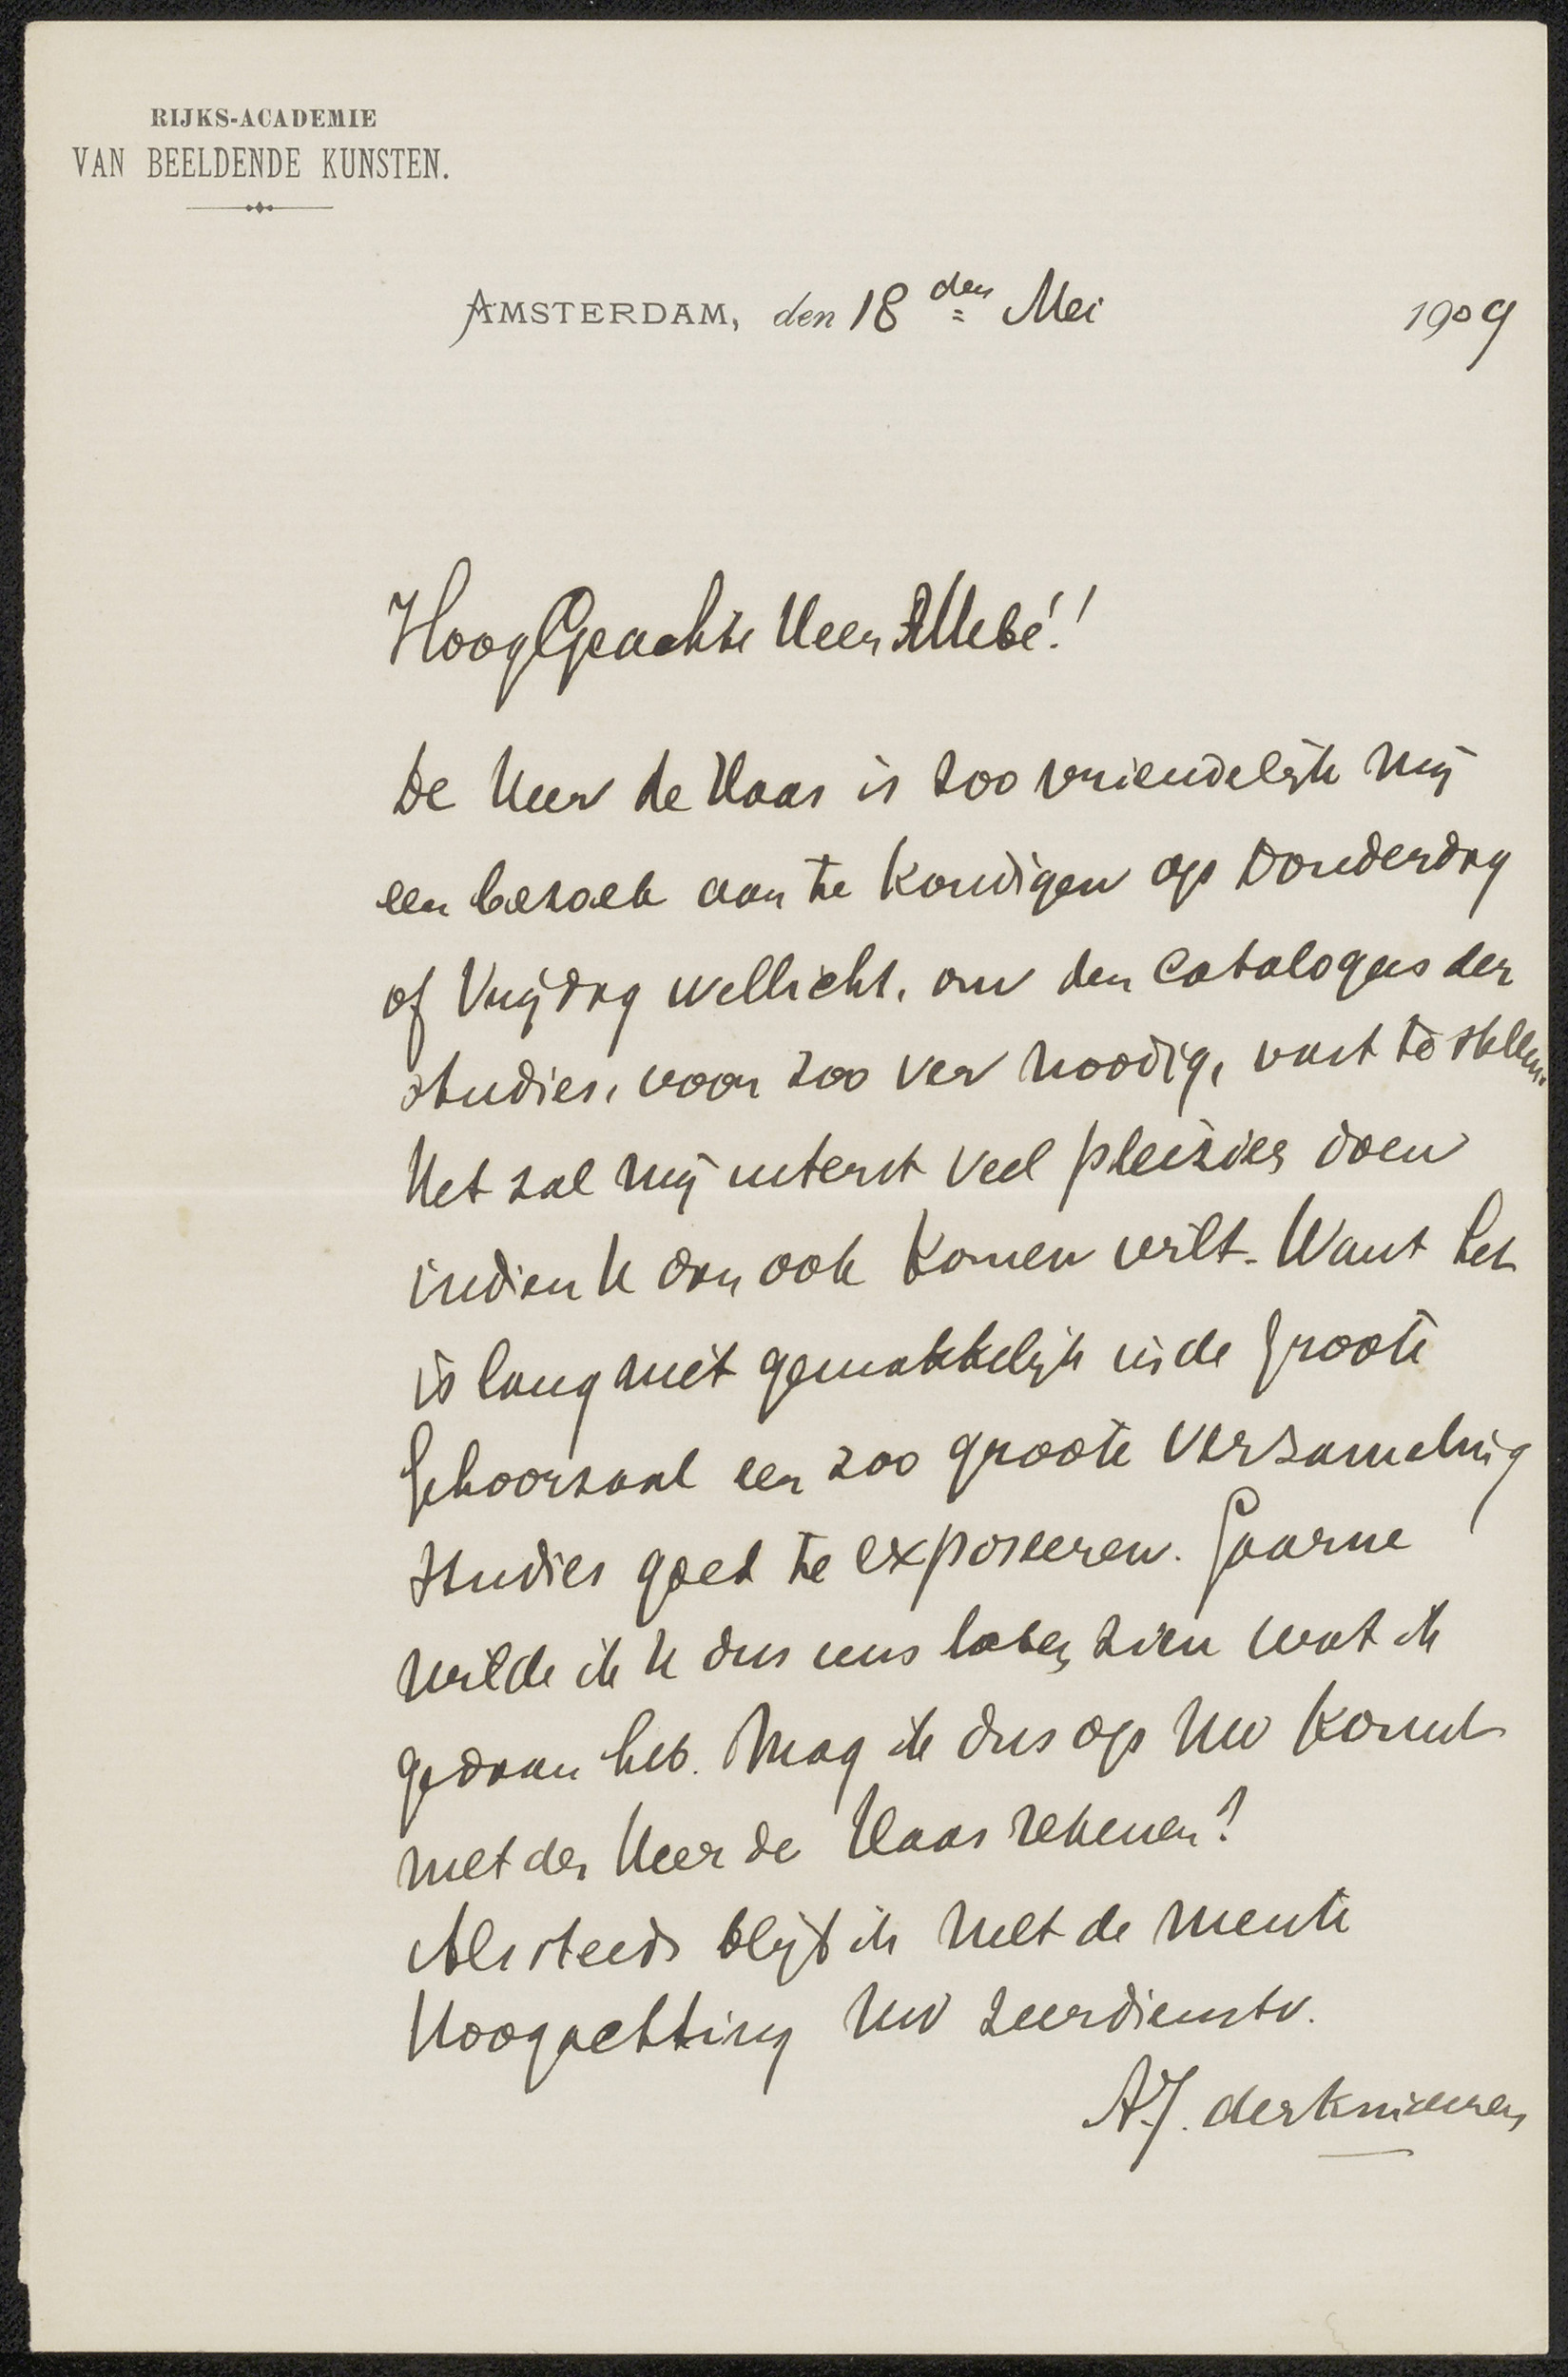 RIJKS-ACADEMIE
VAN BEELDENDE KUNSTEN.
AMSTERDAM, den 18 den Mei 1909
HoogGeachte Heer Allebé!
De Heer de Haas is zoo vriendelijk mij
een bezoek aan te kondigen op Donderdag
of Vrijdag wellicht, om den Catalogus der
studies, voor zoo ver noodig, vast te stellen.
Het zal mij uiterst veel pleizier doen
indien U dan ook komen wilt. Want het
is lang niet gemakkelijk in de Groote
Gehoorzaal een zoo groote verzameling
studies goed te exposeeren. Gaarne
wilde ik U dus eens laten zien wat ik
gedaan heb. Mag ik dus op Uw komst
met den Heer de Haas rekenen?
Als steeds blijf ik met de meeste
Hoogachting Uw zeerdienstv.
A.J. derkinderen